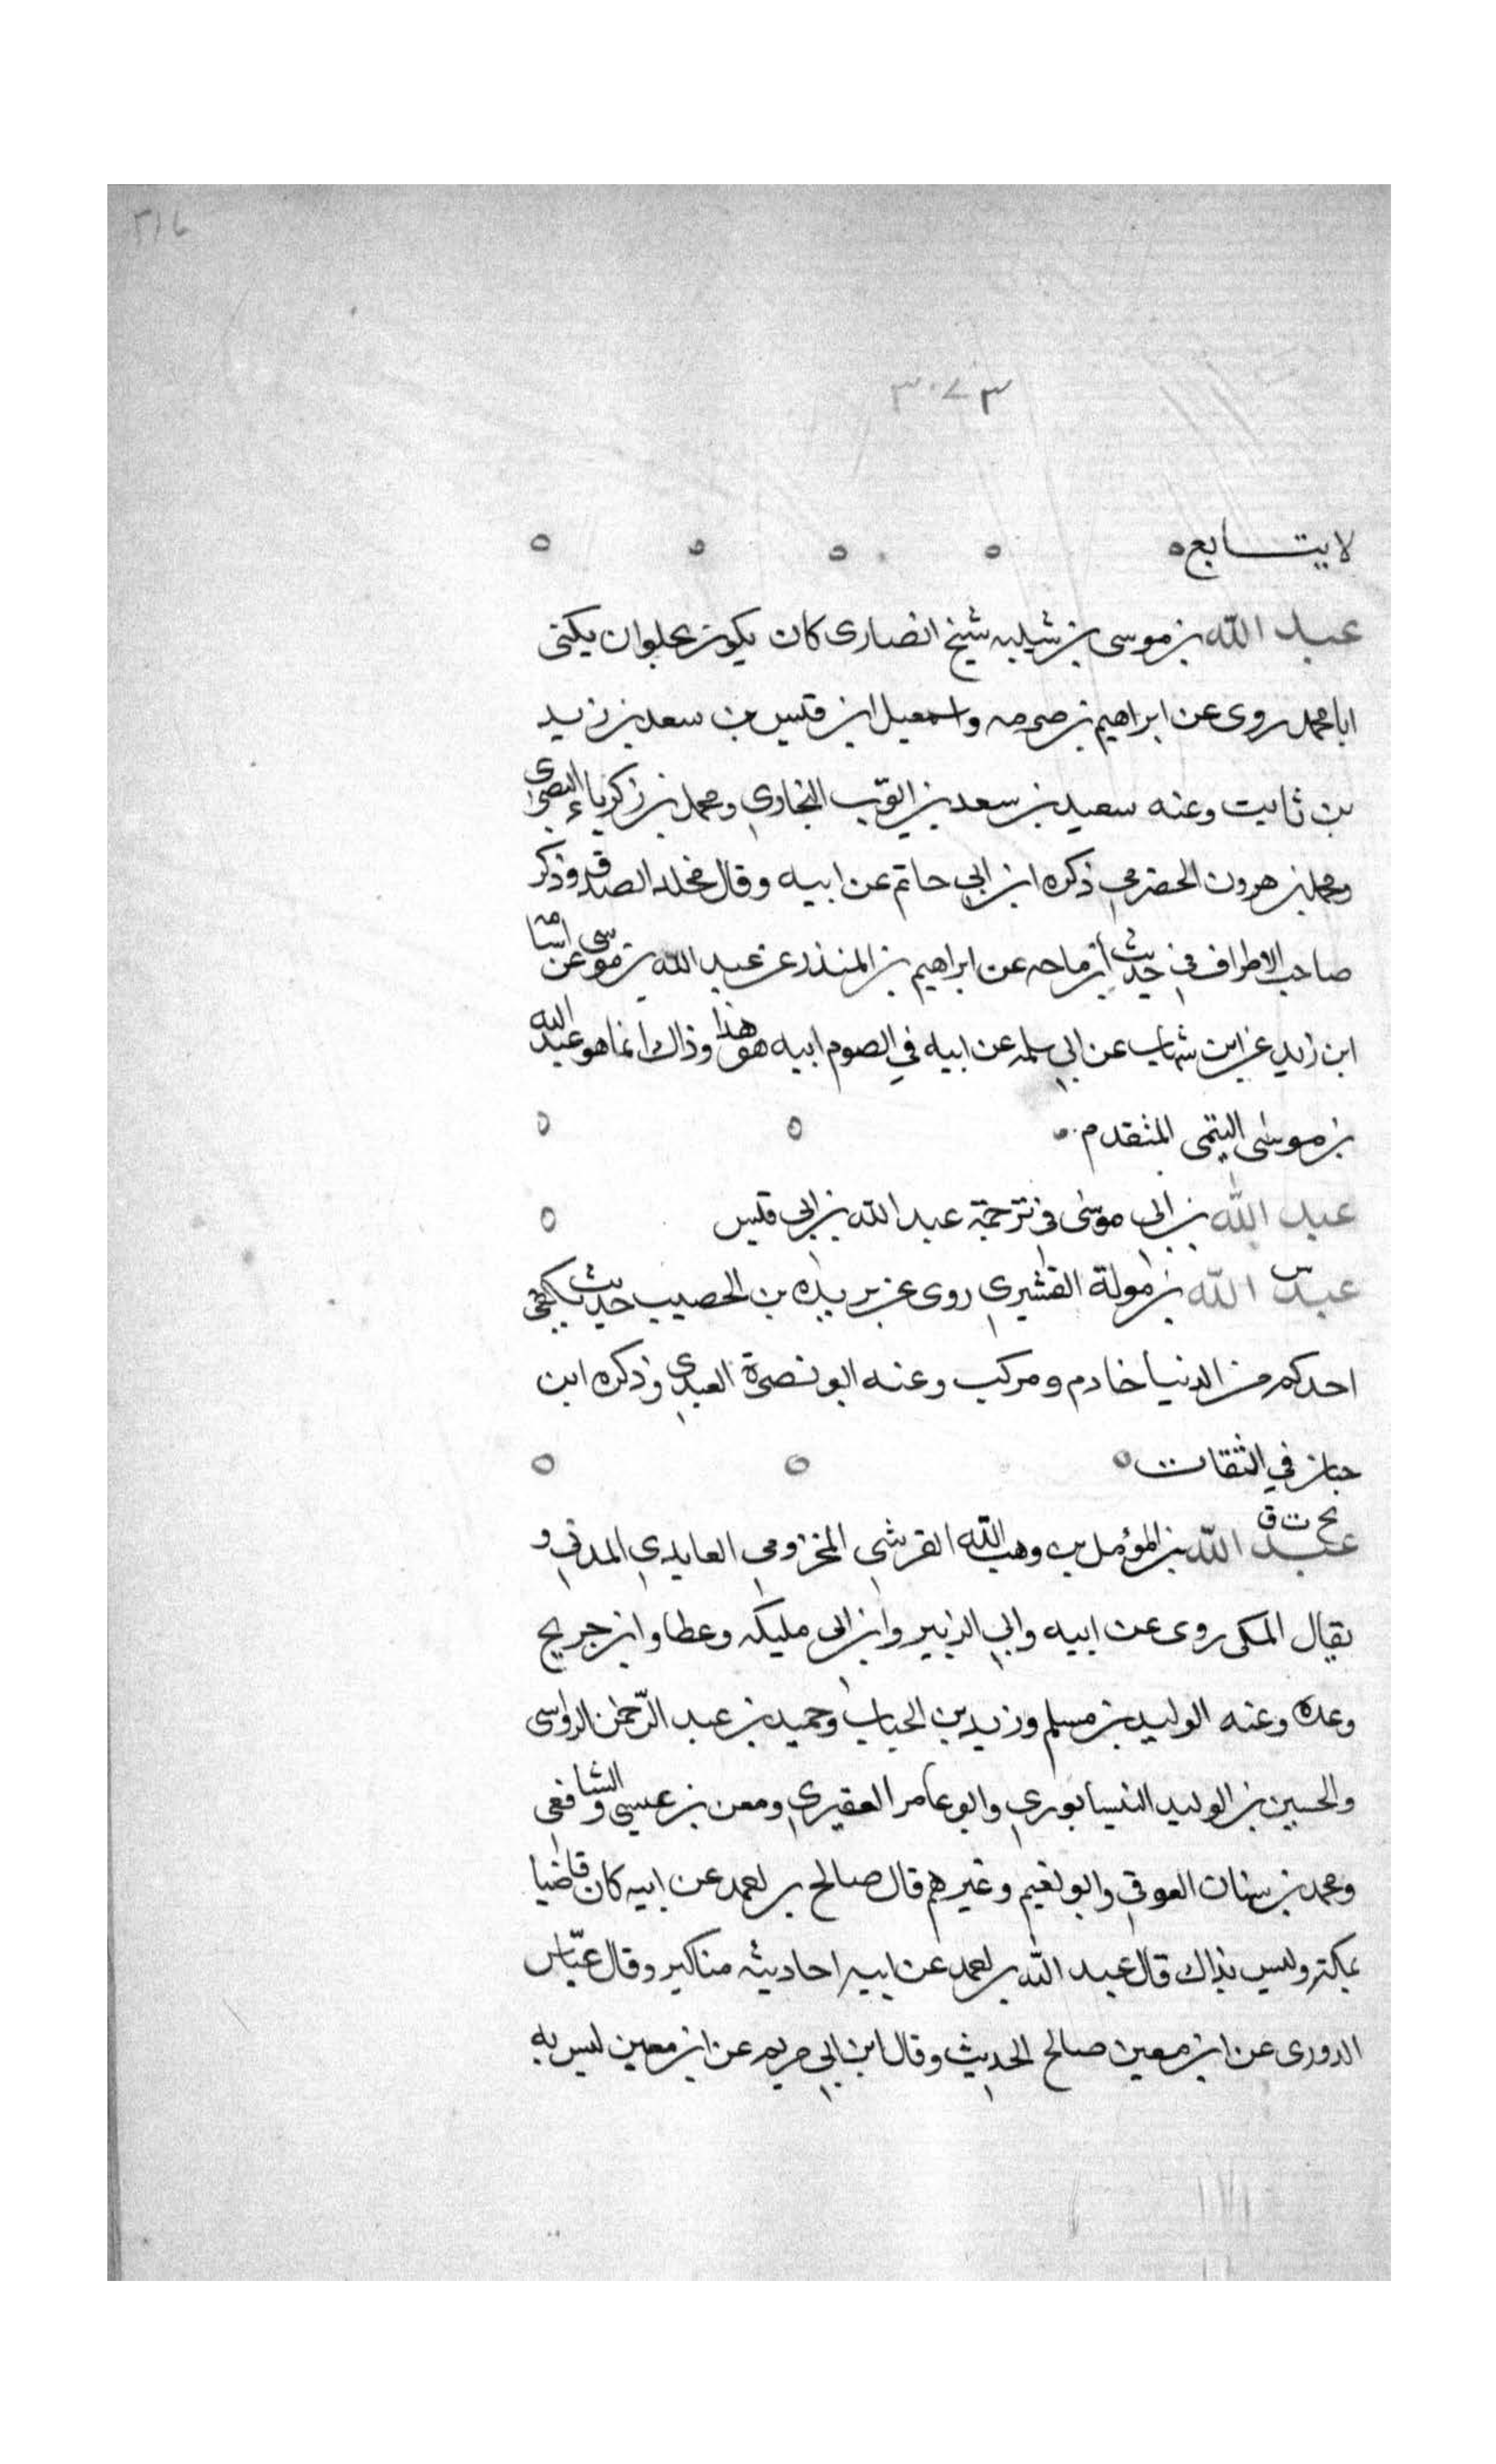 ٣١٦
٣٠٧٣
لا يتابع ٥ ٥ ٥ ٥ ٥
عبد الله بن موسى بن شيبه شيخ انصارى كان يكون بحلوان يكنى
ابا محمد روى عن ابراهيم بن صرمه واسمعيل ابن قيس بن سعد بن زيد
بن ثابت وعنه سعيد بن سعد بن ايوب البخاري ومحمد بن زكرياء البصرى
ومحمد بن هرون الحضرمي ذكره ابن ابي حاتم عن ابيه وقال محله الصدق وذكر
صاحب الاطراف في حديث ابن ماجه عن ابراهيم بن المنذر عن عبد الله بن موسى عن اسامة
ابن زيد عن ابن شهاب عن ابي سلمه عن ابيه في الصوم ابيه هو هذا وذاك انما هو عبد الله
بن موسى التيمى المتقدم ٥ ٥
عبد الله بن ابى موسى في ترجمة عبد الله بن ابى قيس ٥
عبد الله بن مولة القشيري روى عن بريده بن الحصيب حديث يكفى س
احدكم من الدنيا خادم ومركب وعنه ابو نضرة العبدي وذكره ابن
حبان في الثقات ٥ ٥ ٥
بخ ت ق
عبد الله بن المؤمل بن وهب الله القرشي المخزومي العايدي المدني و
يقال المكى روى عن ابيه وابي الزبير وابن ابى مليكه وعطا وابن جريج
وعده وعنه الوليد بن مسلم وزيد بن الحباب وحميد بن عبد الرّحمن الرواسى
والحسين بن الوليد النيسابوري وابو عامر العقدي ومعن بن عيسى والشافعى
ومحمد بن سنان العوقي وابو نعيم وغيرهم قال صالح بن احمد عن ابيه كان قاضيا
بمكة وليس بذاك قال عبد الله بن احمد عن ابيه احاديثه مناكير وقال عبّاس
الدورى عن ابن معين صالح الحديث وقال ابن ابي مريم عن ابن معين ليس به